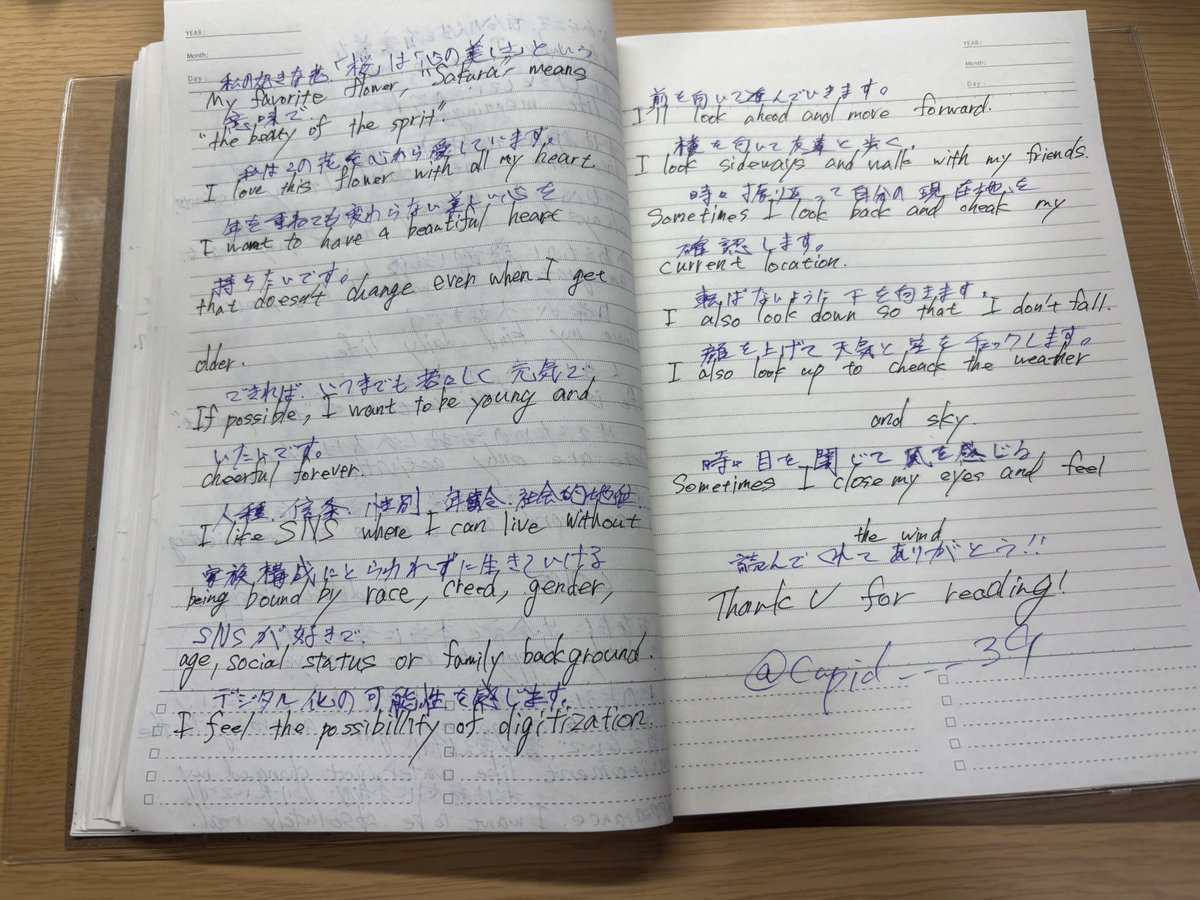 YEAR :
Month:
Day :
私の好きな花、「桜」は「心の美しさ」という
My favorite flower, "Sakura" means
意味で
"the beaty of the sprit".
私はこの花を心から愛しています。
I love this flower with all my heart
年を重ねても変わらない美しい心を
I want to have a beautiful heart
持ちたいです。
that doesn't change even when I get
older.
できれば、いつまでも若々しく元気で
If possible, I want to be young and
いたいです。
cheerful forever.
人種、信条、性別、年齢、社会的地位、
I like SNS where I can live without
家族構成にとらわれずに生きていける
being bound by race, creed, gender,
SNSが好きで
age, social status or family background.
デジタル化の可能性を感じます。
I feel the possibility of digitization.
YEAR:
Month:
Day :
前を向いて進んでいきます。
I'll look ahead and move forward.
横を向いて友達と歩く。
I look sideways and walk with my friends.
時々振り返って自分の現在地を
Sometimes I look back and cheak my
確認します。
current location.
転ばないように下を向きます。
I also look down so that I don't fall.
顔を上げて天気と空をチェックします。
I also look up to cheack the weather
and sky.
時々目を閉じて風を感じる
Sometimes I close my eyes and feel
the wind
読んでくれてありがとう!!
Thank U for reading!
@Cupid_ _ _39